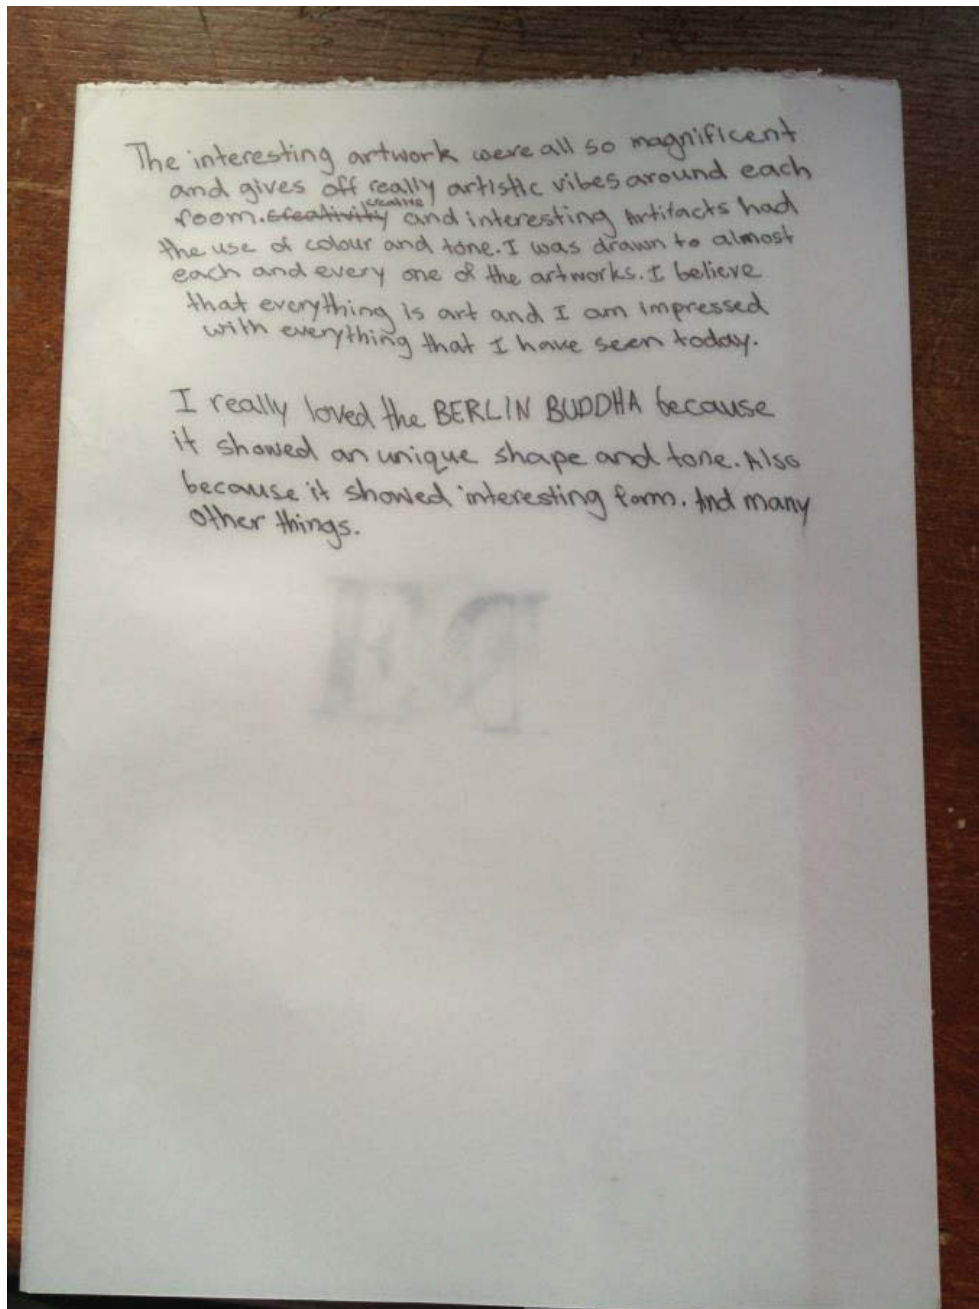 The interesting artwork were all so magnificent
and gives off really artistic vibes around each
room. creativity creative and interesting Artifacts had
the use of colour and tone. I was drawn to almost
each and every one of the artworks. I believe
that everything is art and I am impressed
with everything that I have seen today.
I really loved the BERLIN BUDDHA because
it showed an unique shape and tone. Also
because it showed interesting form. And many
other things.